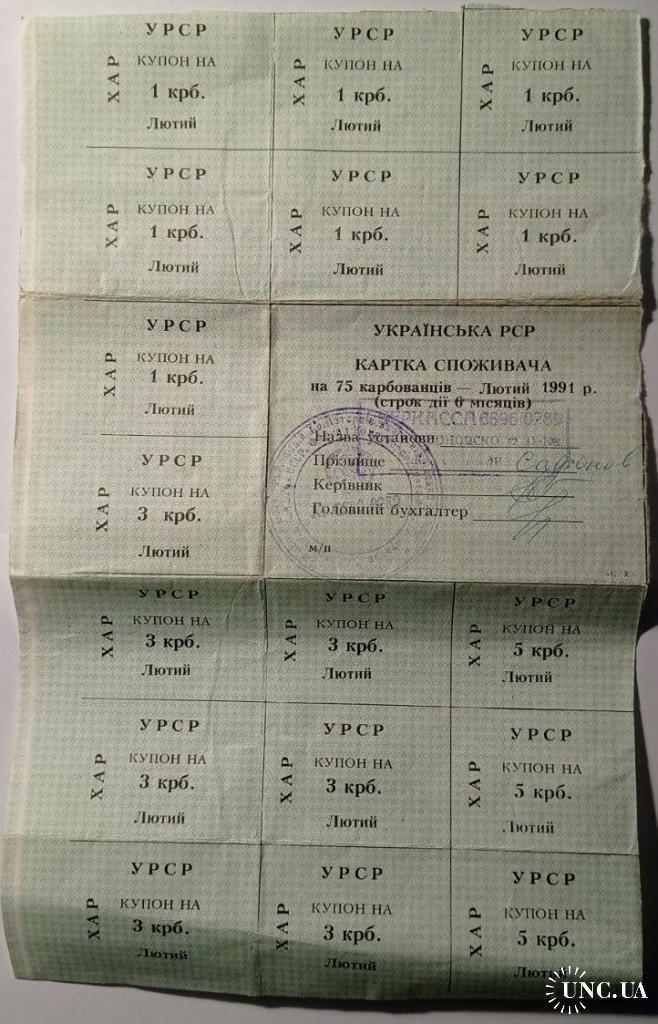 УРСР
ХАР
КУПОН НА
1 крб.
Лютий
УРСР
ХАР
КУПОН НА
1 крб.
Лютий
УРСР
ХАР
КУПОН НА
1 крб.
Лютий
УРСР
ХАР
КУПОН НА
1 крб.
Лютий
УРСР
ХАР
КУПОН НА
1 крб.
Лютий
УРСР
ХАР
КУПОН НА
1 крб.
Лютий
УРСР
ХАР
КУПОН НА
1 крб.
Лютий
УРСР
ХАР
КУПОН НА
3 крб.
Лютий
УКРАЇНСЬКА РСР
КАРТКА СПОЖИВАЧА
на 75 карбованців — Лютий 1991 р.
(строк дії 6 місяців)
Назва установи
Прізвище
Керівник
Головний бухгалтер
м/п
УРСР
ХАР
КУПОН НА
3 крб.
Лютий
УРСР
ХАР
КУПОН НА
3 крб.
Лютий
УРСР
ХАР
КУПОН НА
5 крб.
Лютий
УРСР
ХАР
КУПОН НА
3 крб.
Лютий
УРСР
ХАР
КУПОН НА
3 крб.
Лютий
УРСР
ХАР
КУПОН НА
5 крб.
Лютий
УРСР
ХАР
КУПОН НА
3 крб.
Лютий
УРСР
ХАР
КУПОН НА
3 крб.
Лютий
УРСР
ХАР
КУПОН НА
5 крб.
Лютий
UNC.UA